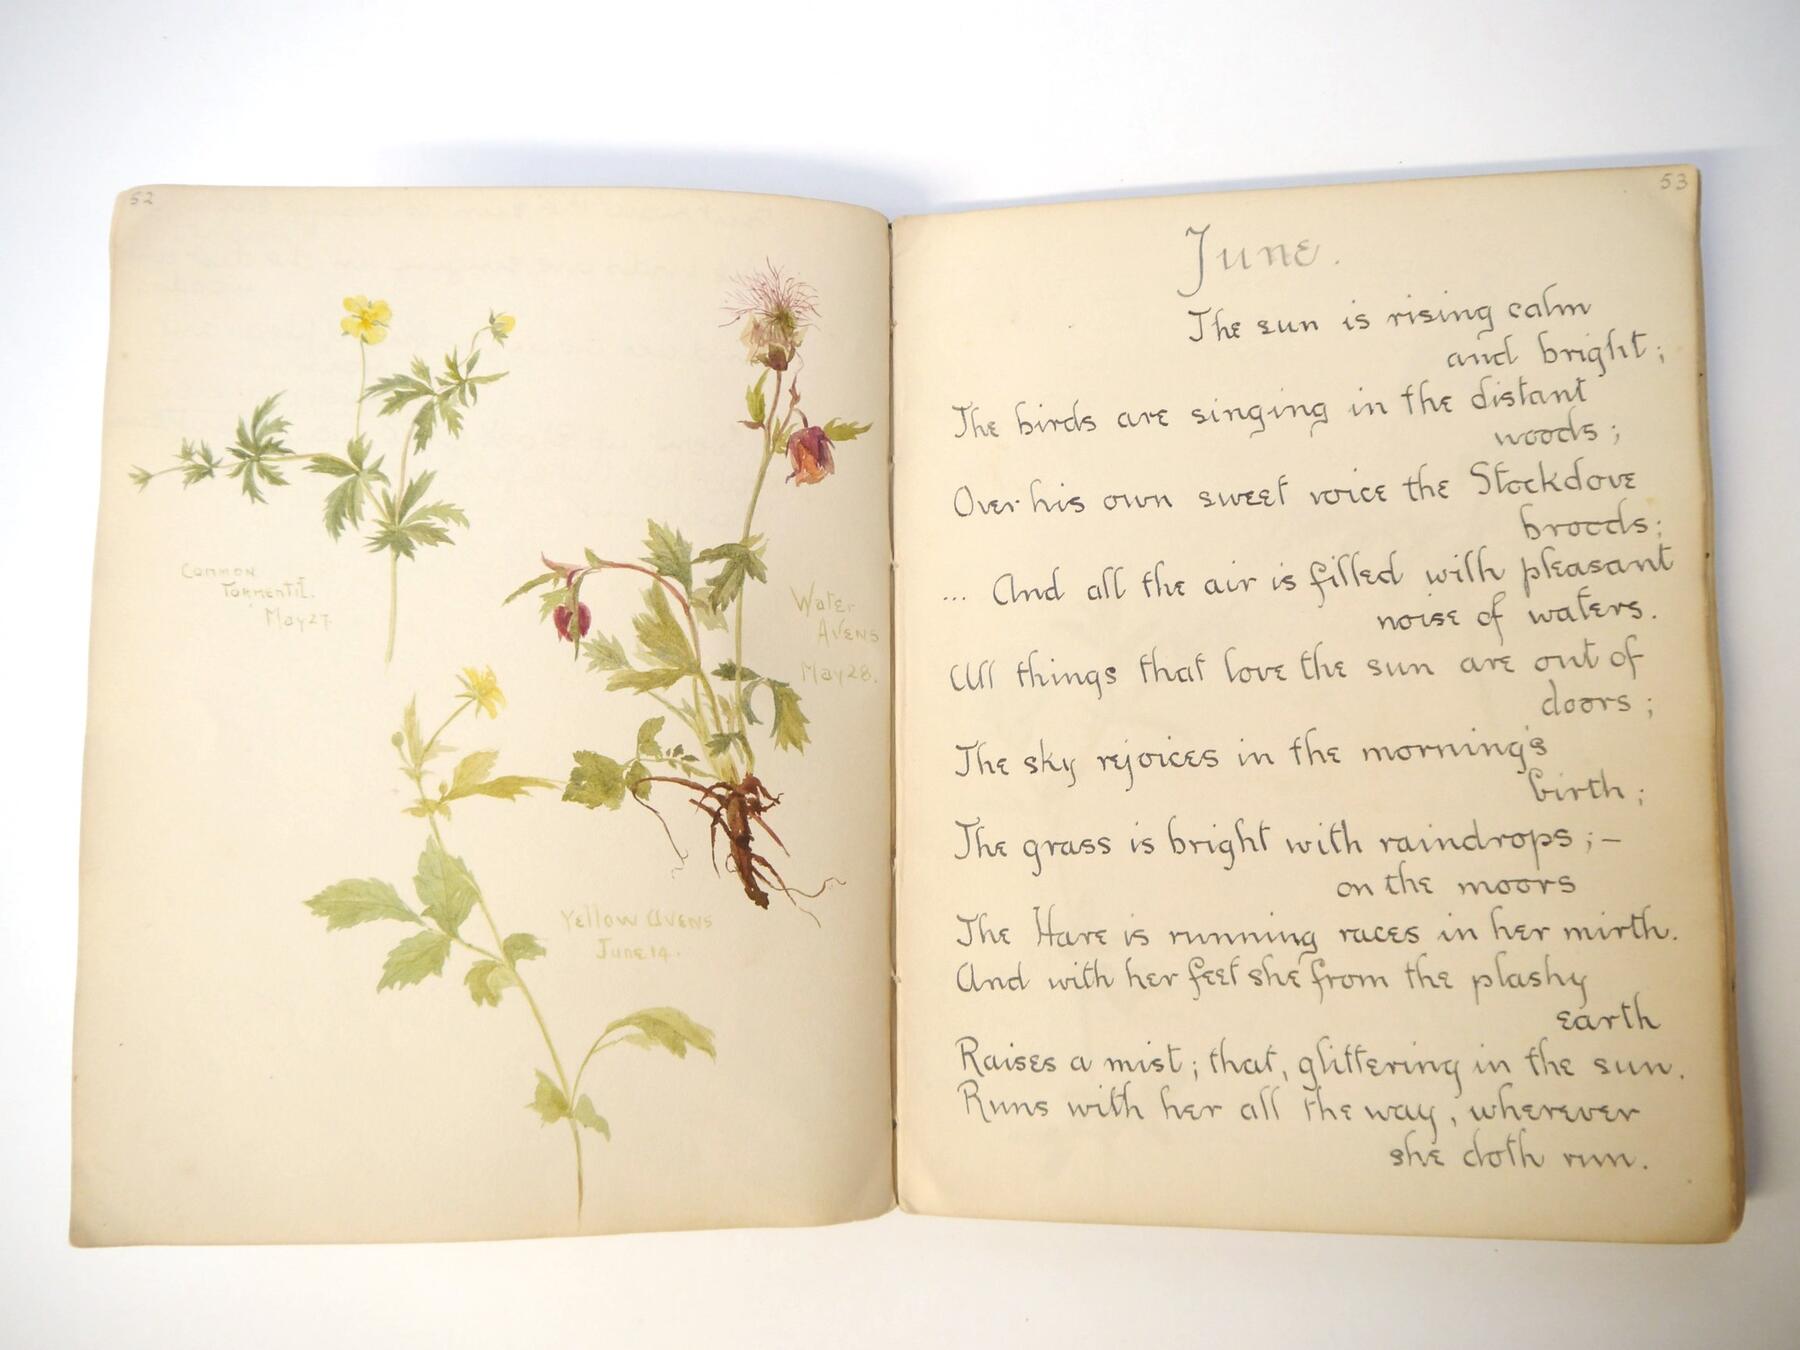 52
Common
Tormentil.
May 27.
Water
Avens
May 28.
Yellow Avens
June 14.
53
June.
The sun is rising calm
and bright;
The birds are singing in the distant
woods;
Over his own sweet voice the Stockdove
broods;
... And all the air is filled with pleasant
noise of waters.
All things that love the sun are out of
doors;
The sky rejoices in the morning's
birth;
The grass is bright with raindrops; –
on the moors
The Hare is running races in her mirth.
And with her feet she from the plashy
earth
Raises a mist; that, glittering in the sun.
Runs with her all the way, wherever
she doth run.